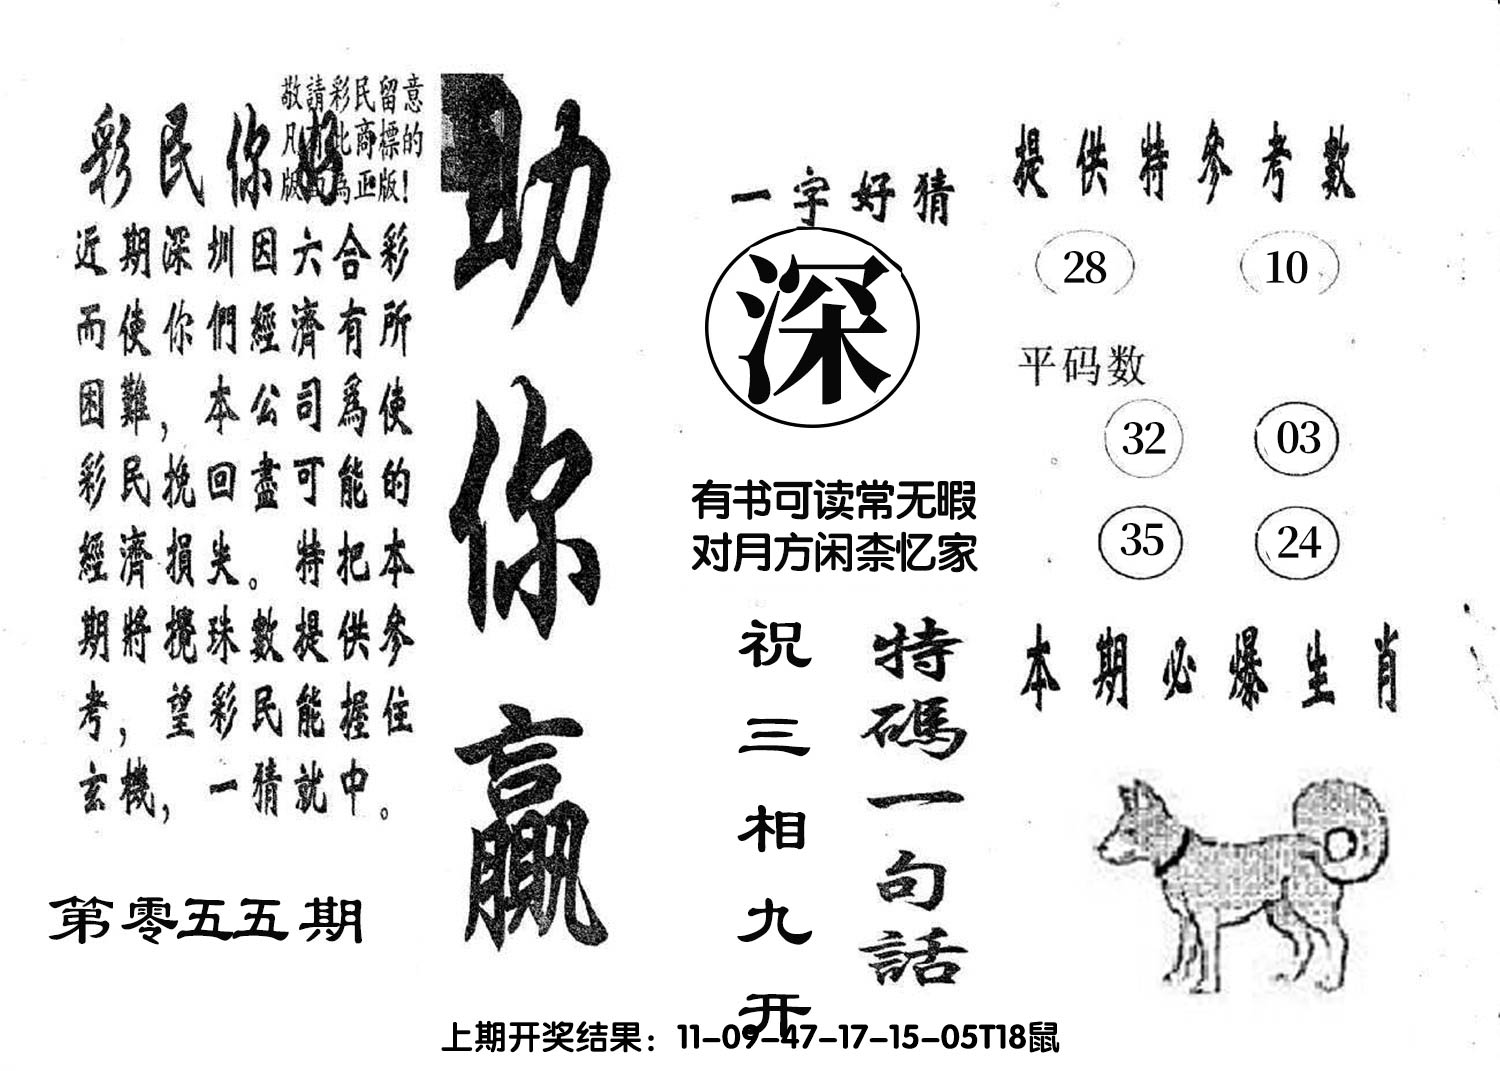 敬請彩民留意
凡有此商標的
版面為正版!
彩民你好
近期深圳因六合彩
而使你們經濟有所
困難，本公司爲使
彩民挽回盡可能的
經濟損失。特把本
期將攪珠數提供參
考，望彩民能握住
玄機，一猜就中。
第零五五期
助你贏
一字好猜
深
有书可读常无暇
对月方闲柰忆家
特碼一句話
祝三相九开
提供特參考數
28 10
平码数
32 03
35 24
本期必爆生肖
上期开奖结果：11-09-47-17-15-05T18鼠